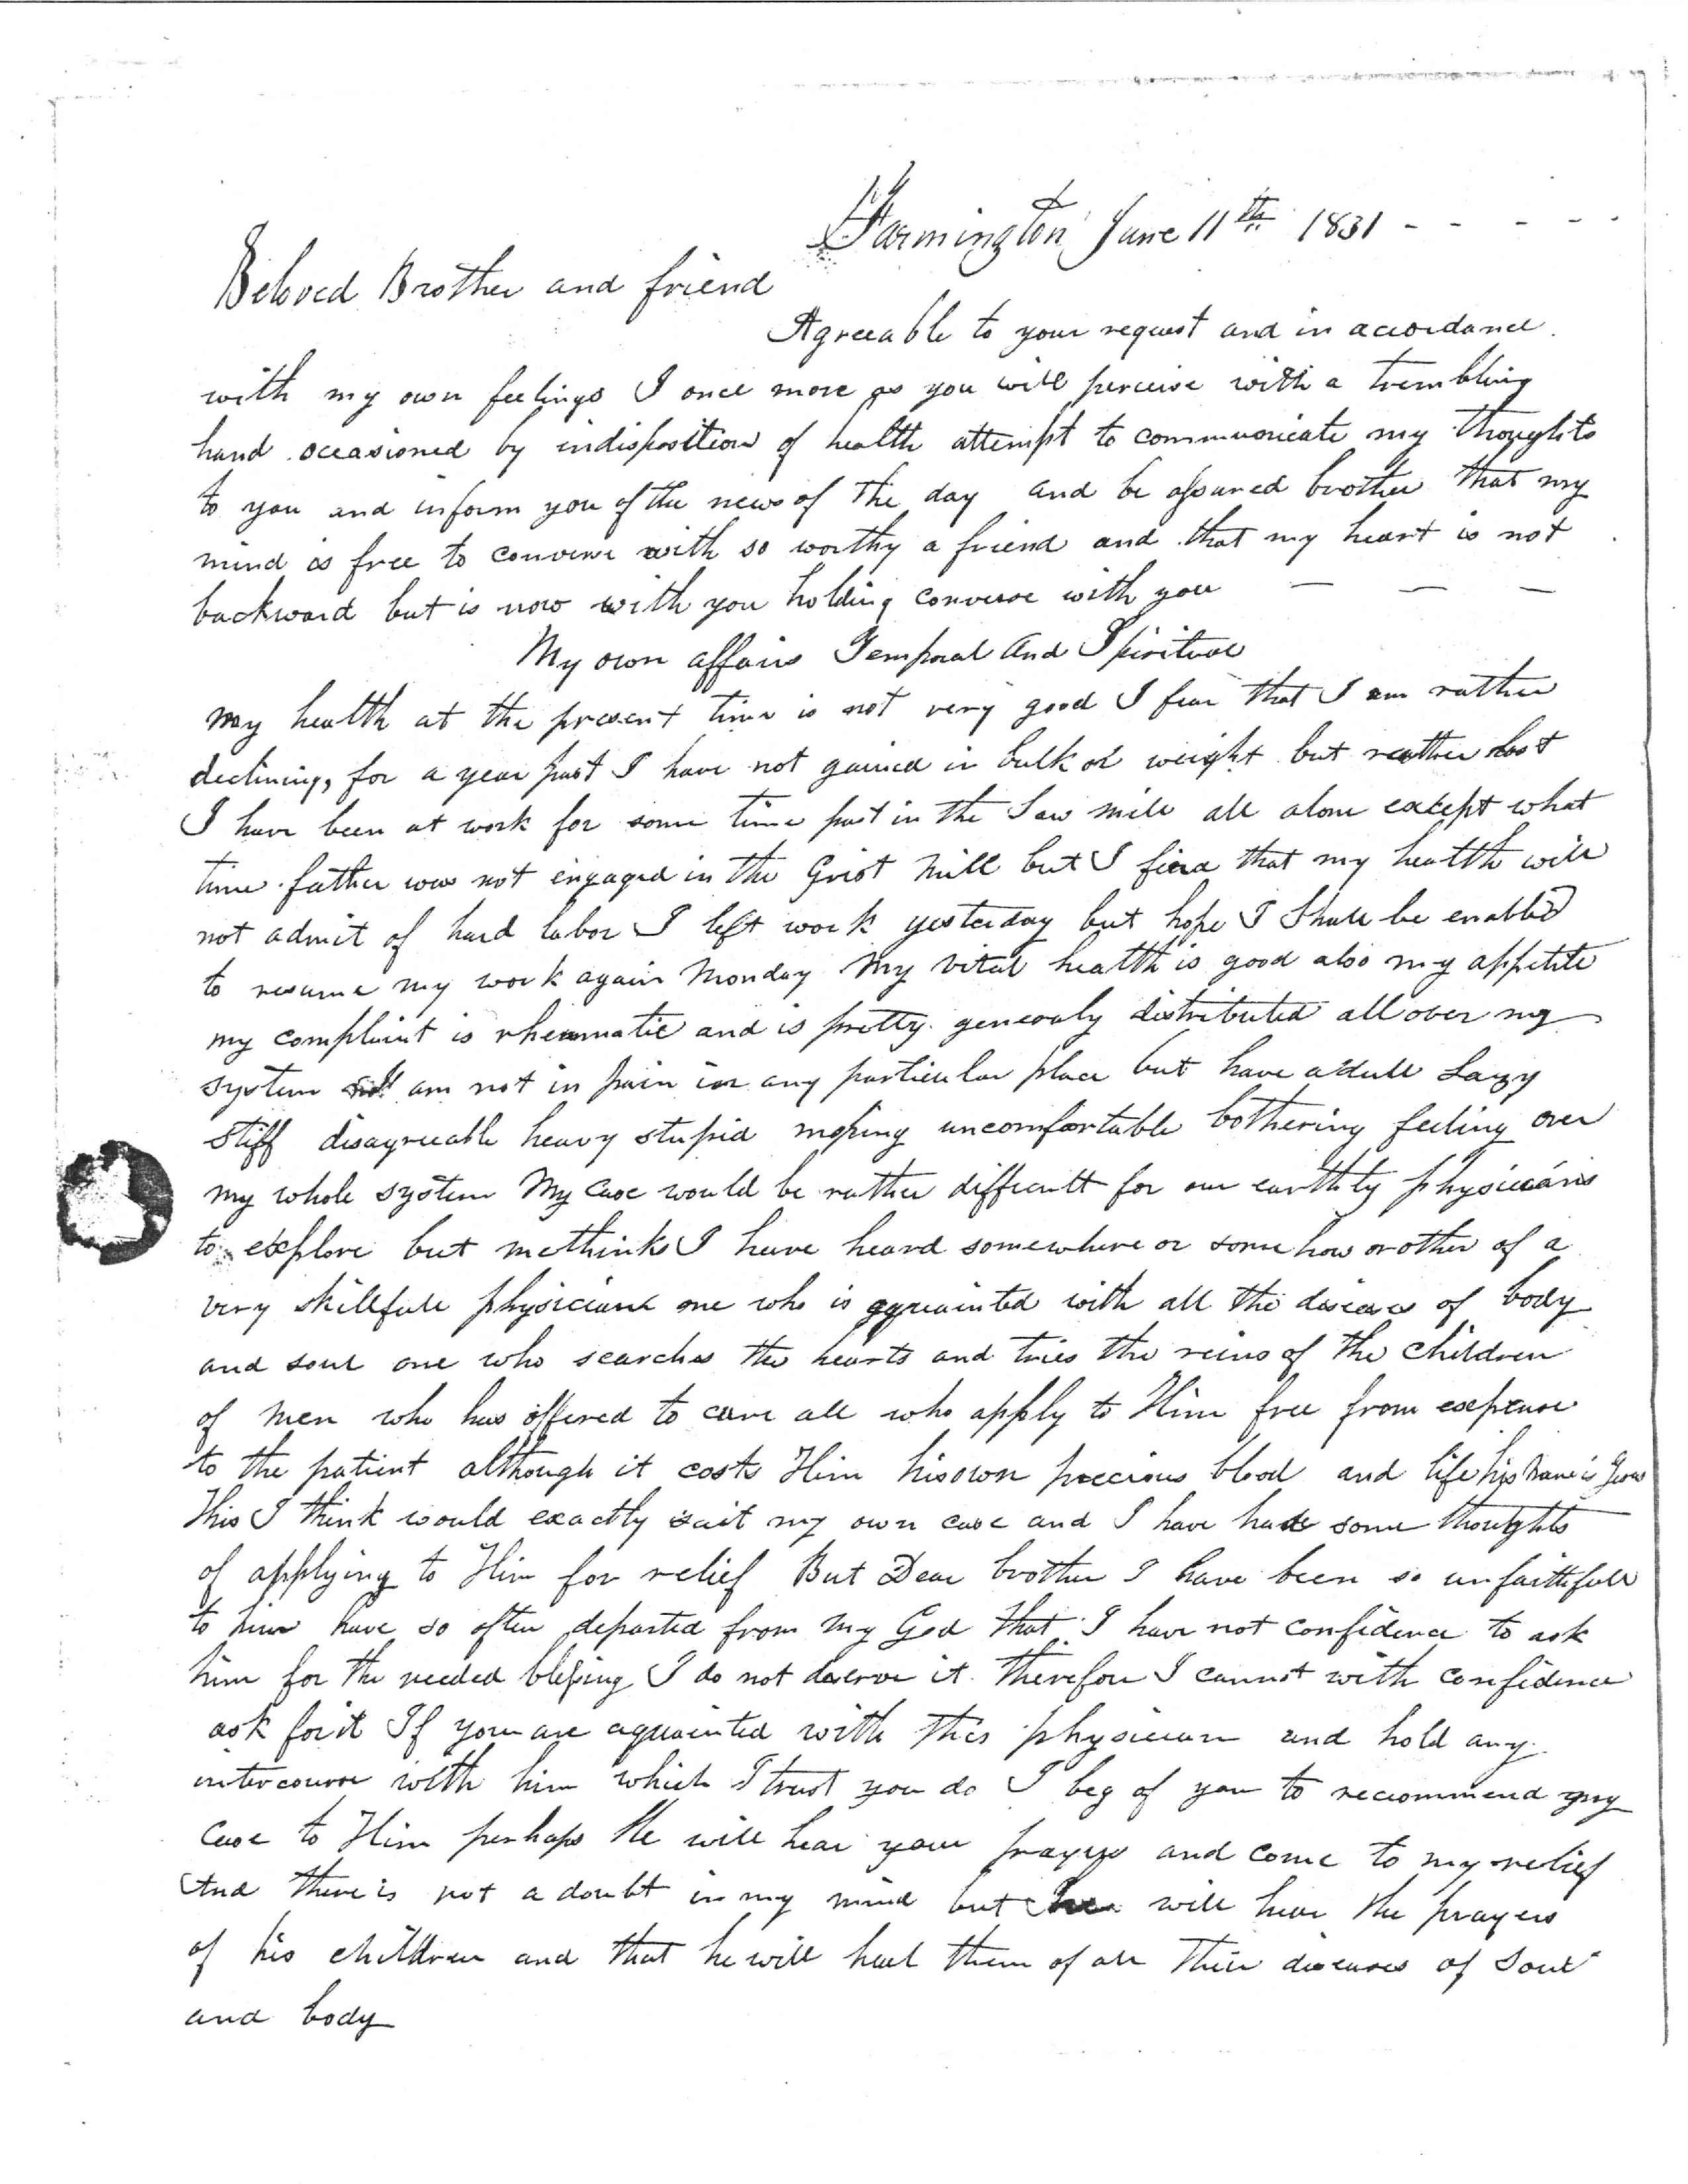 Farmington June 11th 1831 - - - - -
Beloved Brother and friend
Agreeable to your request and in accordance
with my own feelings I once more as you will perceive with a trembling
hand occasioned by indisposition of health attempt to communicate my thoughts
to you and inform you of the news of the day and be assured brother that my
mind is free to converse with so worthy a friend and that my heart is not
backward but is now with you holding converse with you — — —
My own affairs Temporal And Spiritual
my health at the present time is not very good I fear that I am rather
declining, for a year past I have not gained in bulk or weight but rather lost
I have been at work for some time past in the Saw mill all alone except what
time father was not engaged in the Grist Mill but I find that my health will
not admit of hard labor I left work yesterday but hope I shall be enabled
to resume my work again Monday My vital health is good also my appetite
my complaint is rheumatic and is pretty generaly distributed all over my
system I am not in pain in any particular place but have a dull Lazy
stiff disagreeable heavy stupid moping uncomfortable bothering feeling over
my whole system My case would be rather difficult for our earthly physicians
to explore but methinks I have heard somewhere or some how or other of a
very skillfull physician one who is aquainted with all the diseases of body
and soul one who searches the hearts and tries the reins of the children
of men who has offered to cure all who apply to Him free from expense
to the patient although it costs Him his own precious blood and life his name is Jesus
This I think would exactly suit my own case and I have had some thoughts
of applying to Him for relief But Dear brother I have been so unfaithfull
to him have so often departed from my God that I have not confidence to ask
him for the needed blessing I do not deserve it therefore I cannot with confidence
ask for it If you are aquainted with this physician and hold any
intercourse with him which I trust you do I beg of you to recommend my
case to Him perhaps He will hear your prayers and come to my relief
And there is not a doubt in my mind but he will hear the prayers
of his children and that he will heal them of all their diseases of Soul
and body